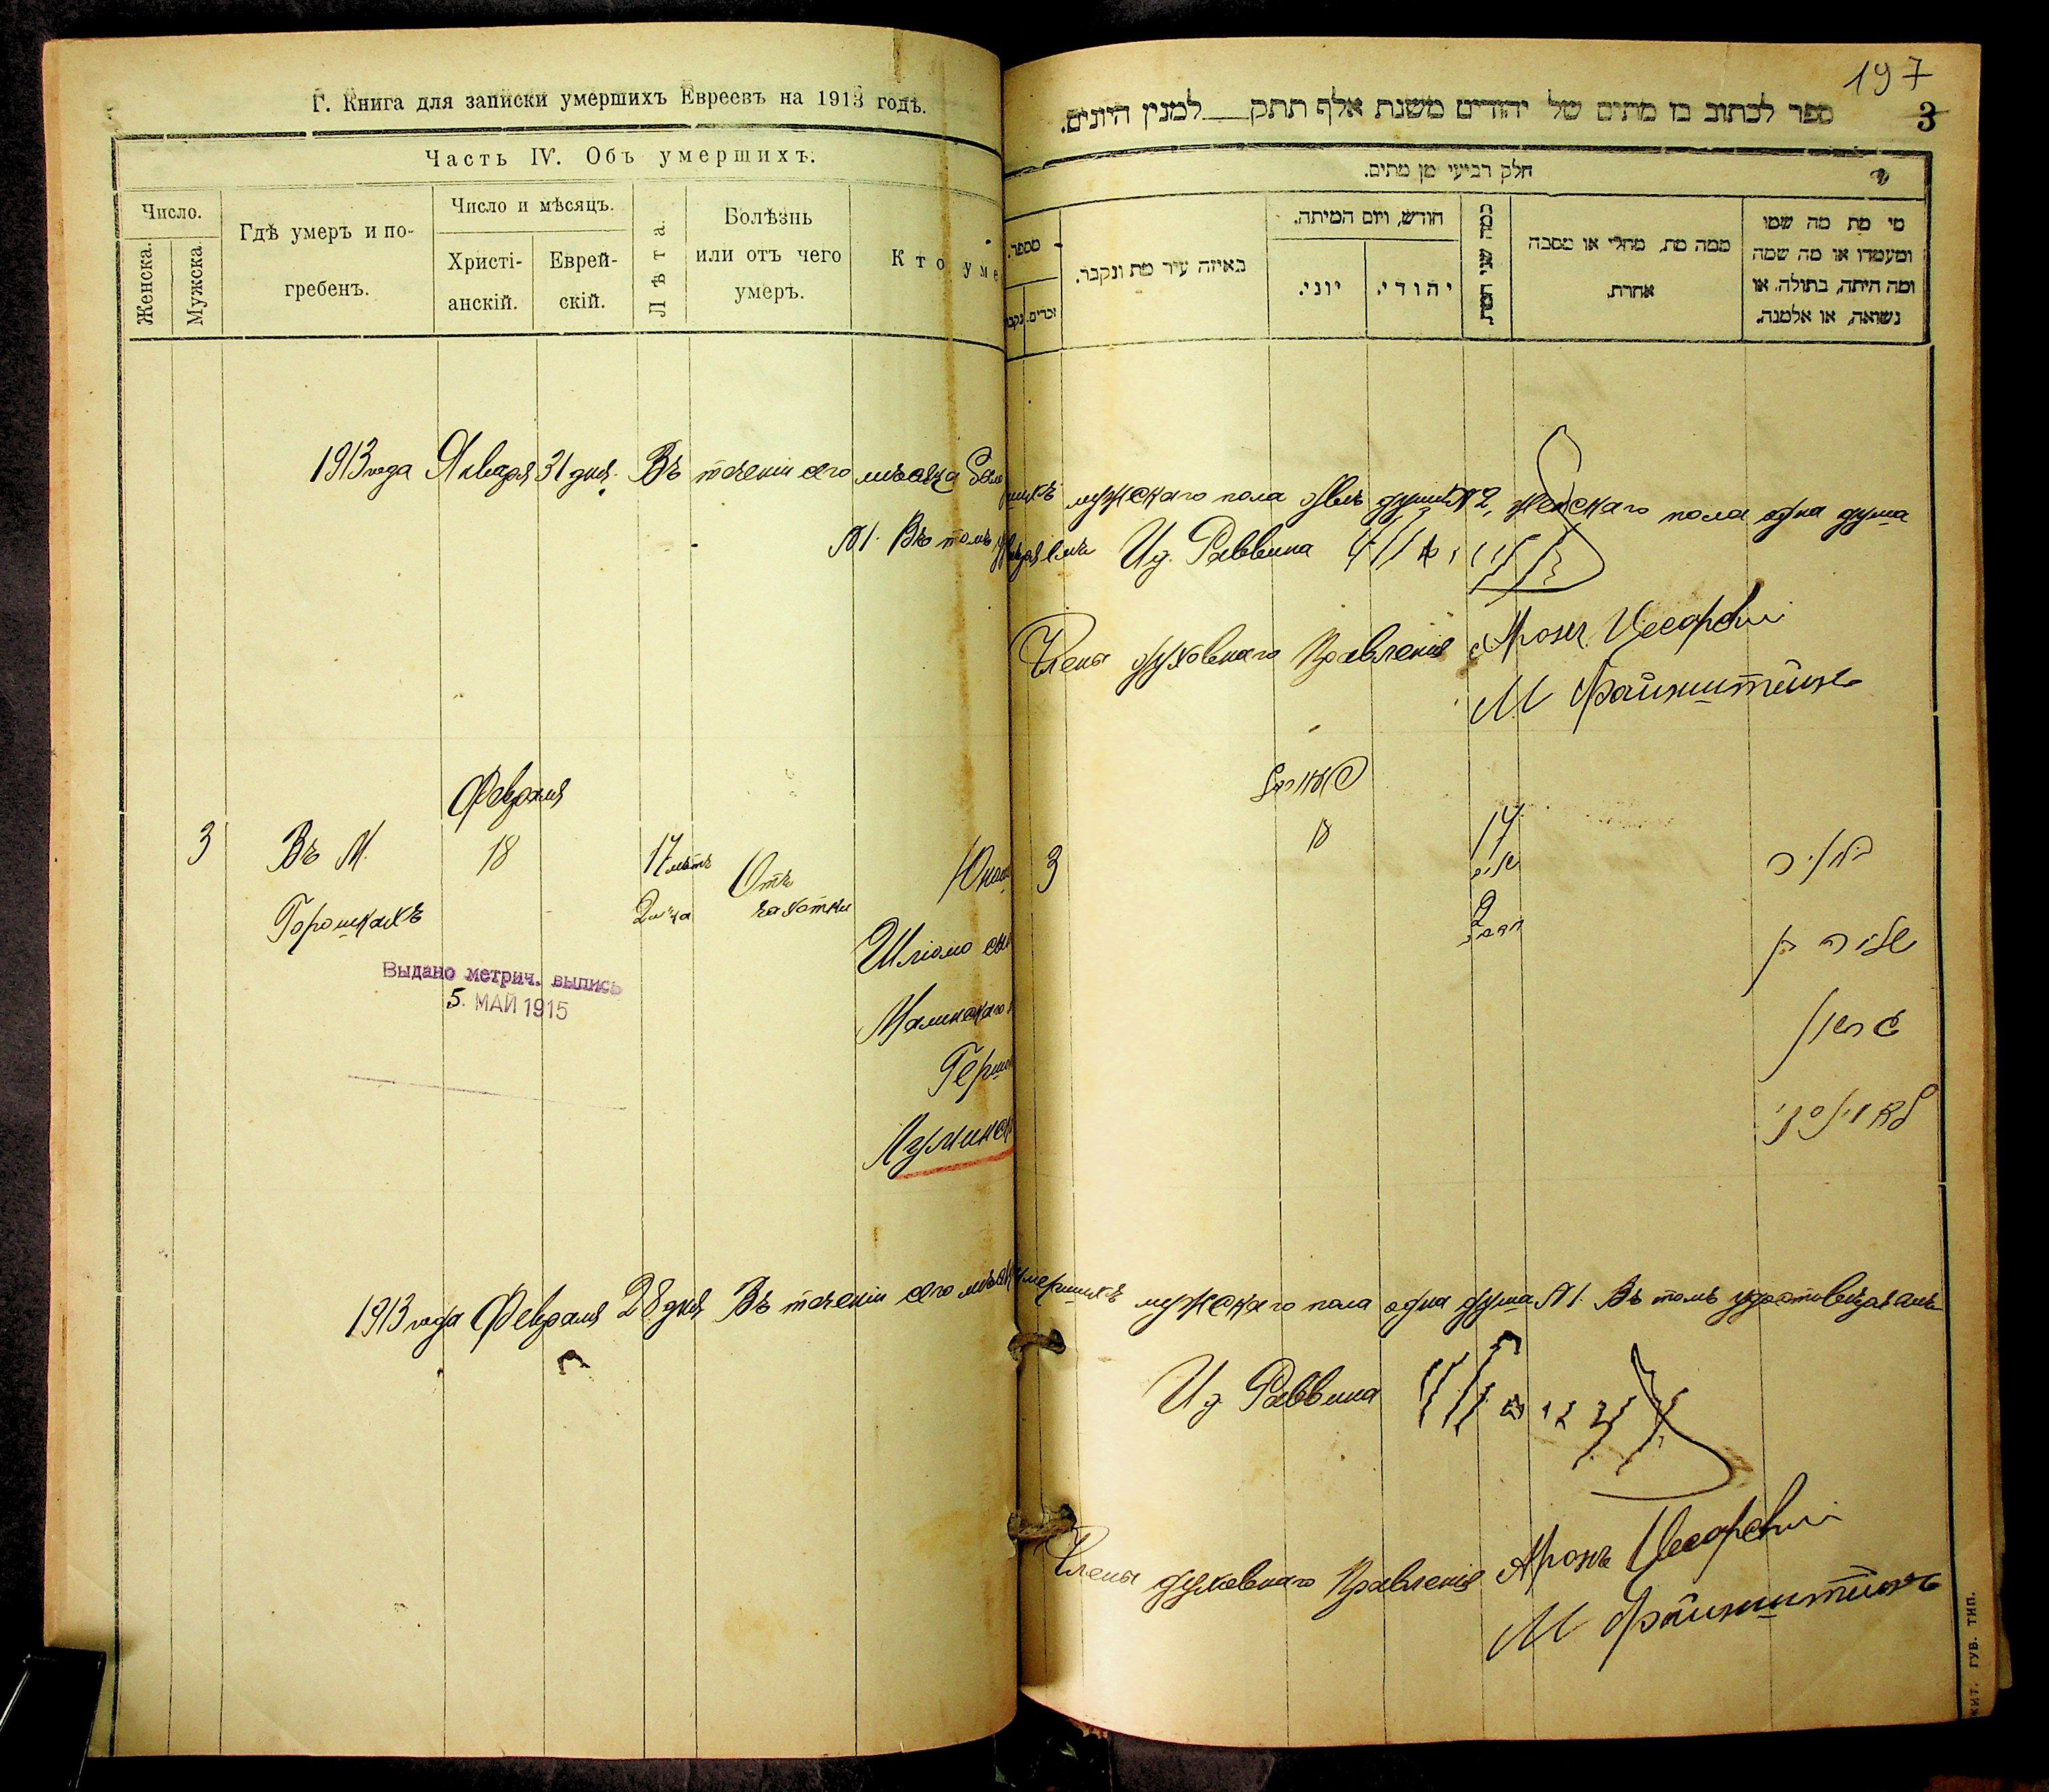 Г. Книга для записки умершихъ Евреевъ на 1913 годъ.
Часть IV. Объ умершихъ.
Число.
Женска.
Мужска.
Гдѣ умеръ и по-
гребенъ.
Число и мѣсяцъ.
Христі-
анскій.
Еврей-
скій.
Лѣта.
Болѣзнь
или отъ чего
умеръ.
Кто уме
1913 года Января 31 дня. Въ теченіи сего мѣсяца
№1. Въ томъ
Февраля
3 Въ М. 18 17 лѣтъ Отъ Юнош
Горошкахъ 2 м-ца чахотки
Шліомо сын
Малинскаго
Герш
Выдано метрич. выпись
5. МАЙ 1915
1913 года Февраля 28 дня Въ теченіи сего мѣся
197
3
ספר לכתוב בו מתים של יהודים משנת אלף תתק למנין היונים.
חלק רביעי מן מתים.
מספר.
זכרים.
נקב
באיזה עיר מת ונקבר.
חודש, ויום המיתה.
יוני.
יהודי.
כמה שני המת
ממה מת, מחלי או מסבה
אחרת.
מי מת מה שמו
ומעמדו או מה שמה
ומה היתה, בתולה, או
נשואה, או אלמנה.
мужскаго пола двѣ души №2, женскаго пола одна душа
Ид. Раввина
Члены духовнаго Правленія Аронъ Цесарскій
М Файнштейнъ
3 18 17
2
умершихъ мужскаго пола одна душа №1. Въ томъ удостовѣряемъ
Ид. Раввина
Члены духовнаго Правленія Аронъ Цесарскій
М Файнштейнъ
ЖИТ. ГУБ. ТИП.